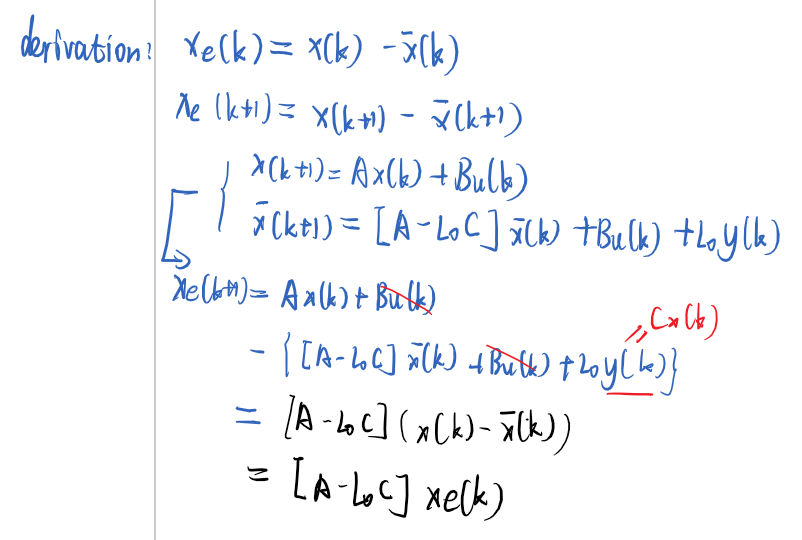 derivation: xe(k) = x(k) - x̄(k)
xe(k+1) = x(k+1) - x̄(k+1)
{ x(k+1) = Ax(k) + Bu(k)
x̄(k+1) = [A-LoC] x̄(k) + Bu(k) + Loy(k)
xe(k+1) = Ax(k) + Bu(k)
Cx(k)
- { [A-LoC] x̄(k) + Bu(k) + Loy(k) }
= [A-LoC] (x(k) - x̄(k))
= [A-LoC] xe(k)